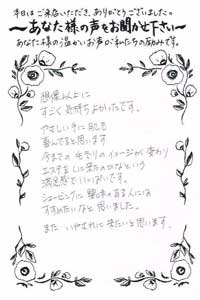 本日はご来店いただき、ありがとうございました。
～あなた様の声をお聞かせ下さい～
あなた様の温かいお声が私たちの励みです。
想像以上に
すごく気持ちよかったです。
やさしい手に肌も
喜んでると思います
今までの毛ぞりのイメージが変わり
エステをしに来たのかなという
満足感でいっぱいです。
シェービングに興味の有る人には
すすめたいなと思いました。
また いやされに来たいと思います。